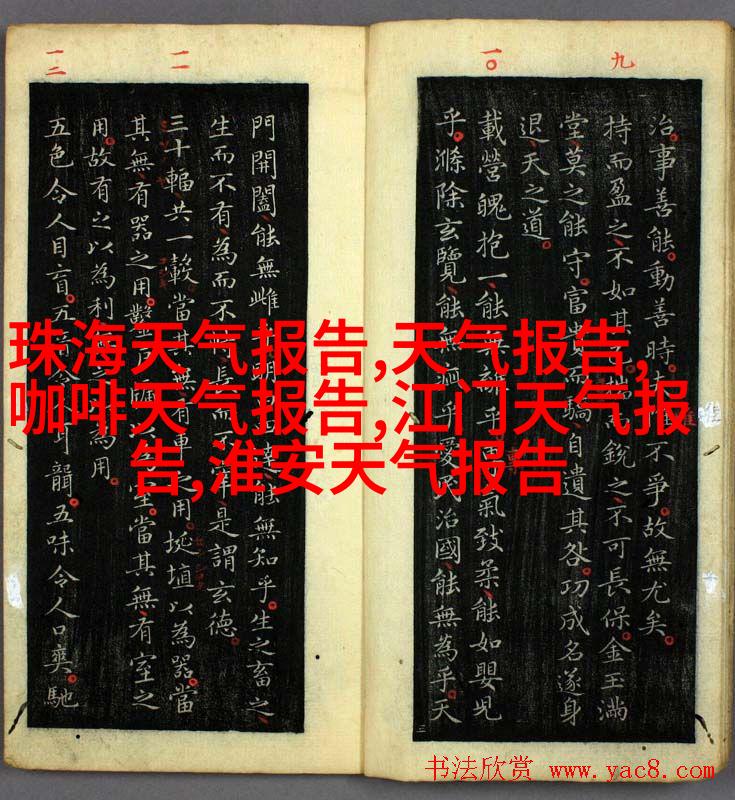 九
治事善能動善時唯不爭故無尤矣
持而盈之不如其揣銳之不可長保金玉滿
堂莫之能守富貴而驕自遺其咎功成名遂身
退天之道
一〇
載營魄抱一能無離乎氣致柔能如嬰兒
乎滌除玄覽能無疵乎愛治國能無為乎天
一一
門開闔能無雌明達能無知乎生之畜之
生而不有為而不長而不宰是謂玄德
三十輻共一轂當其無有車之用埏埴以為器當
其無有器之用鑿牖為室當其無有室之
用故有之以為利為用
一二
五色令人目盲五音令耳聾五味令人口爽馳
珠海天气报告,天气报告,
咖啡天气报告,江门天气报
告,淮安天气报告
书法欣赏 www.yac8.com